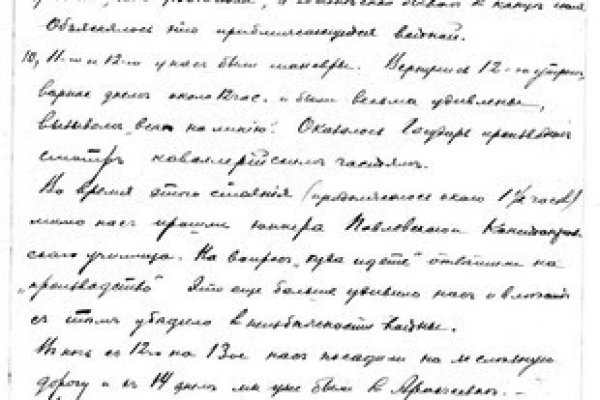 Объяснялось это приближающейся войной.
10, 11-го и 12-го у нас были маневры. Вернулись 12-го утром,
вернее днем около 12 час. и были весьма удивлены,
вызовом „всех на линию". Оказалось Государь производил
смотр кавалерийским частям.
Во время этого стояния (продолжалось около 1½ часов)
мимо нас прошли юнкера Павловского
ского училища. На вопрос „куда идете" ответили на
„производство" Это еще больше удивило нас и
с тем убедило в неизбежности войны.
В ночь с 12-го на 13-ое нас посадили на железную
дорогу и с 14 днем мы уже были в